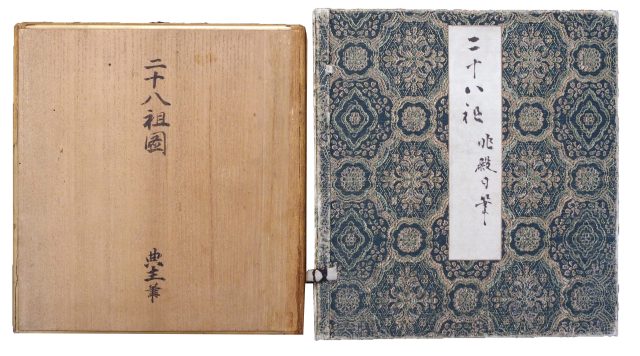 二十八祖圖
典主筆
二十八祖
兆殿司筆